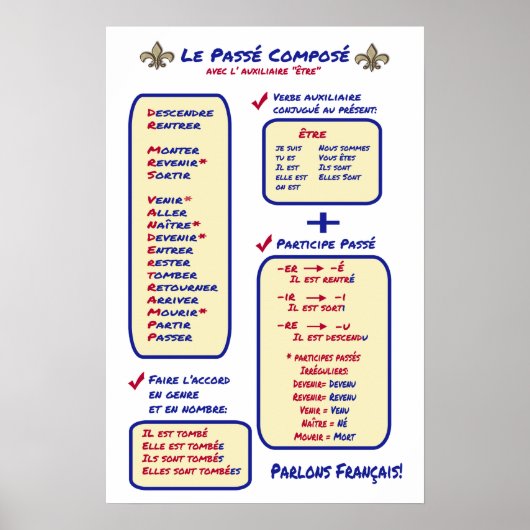 Le Passé Composé
avec l'auxiliaire "être"
Descendre
Rentrer
Monter
Revenir*
Sortir
Venir*
Aller
Naître*
Devenir*
Entrer
Rester
Tomber
Retourner
Arriver
Mourir*
Partir
Passer
Faire l'accord
en genre
et en nombre:
Il est tombé
Elle est tombée
Ils sont tombés
Elles sont tombées
Verbe auxiliaire
conjugué au présent:
être
je suis Nous sommes
tu es Vous êtes
Il est Ils sont
elle est Elles Sont
on est
+
Participe Passé
-er → -é
Il est rentré
-ir → -i
Il est sorti
-re → -u
Il est descendu
* participes passés
Irréguliers:
Devenir= Devenu
Revenir= Revenu
Venir = Venu
Naître = Né
Mourir = Mort
Parlons Français!